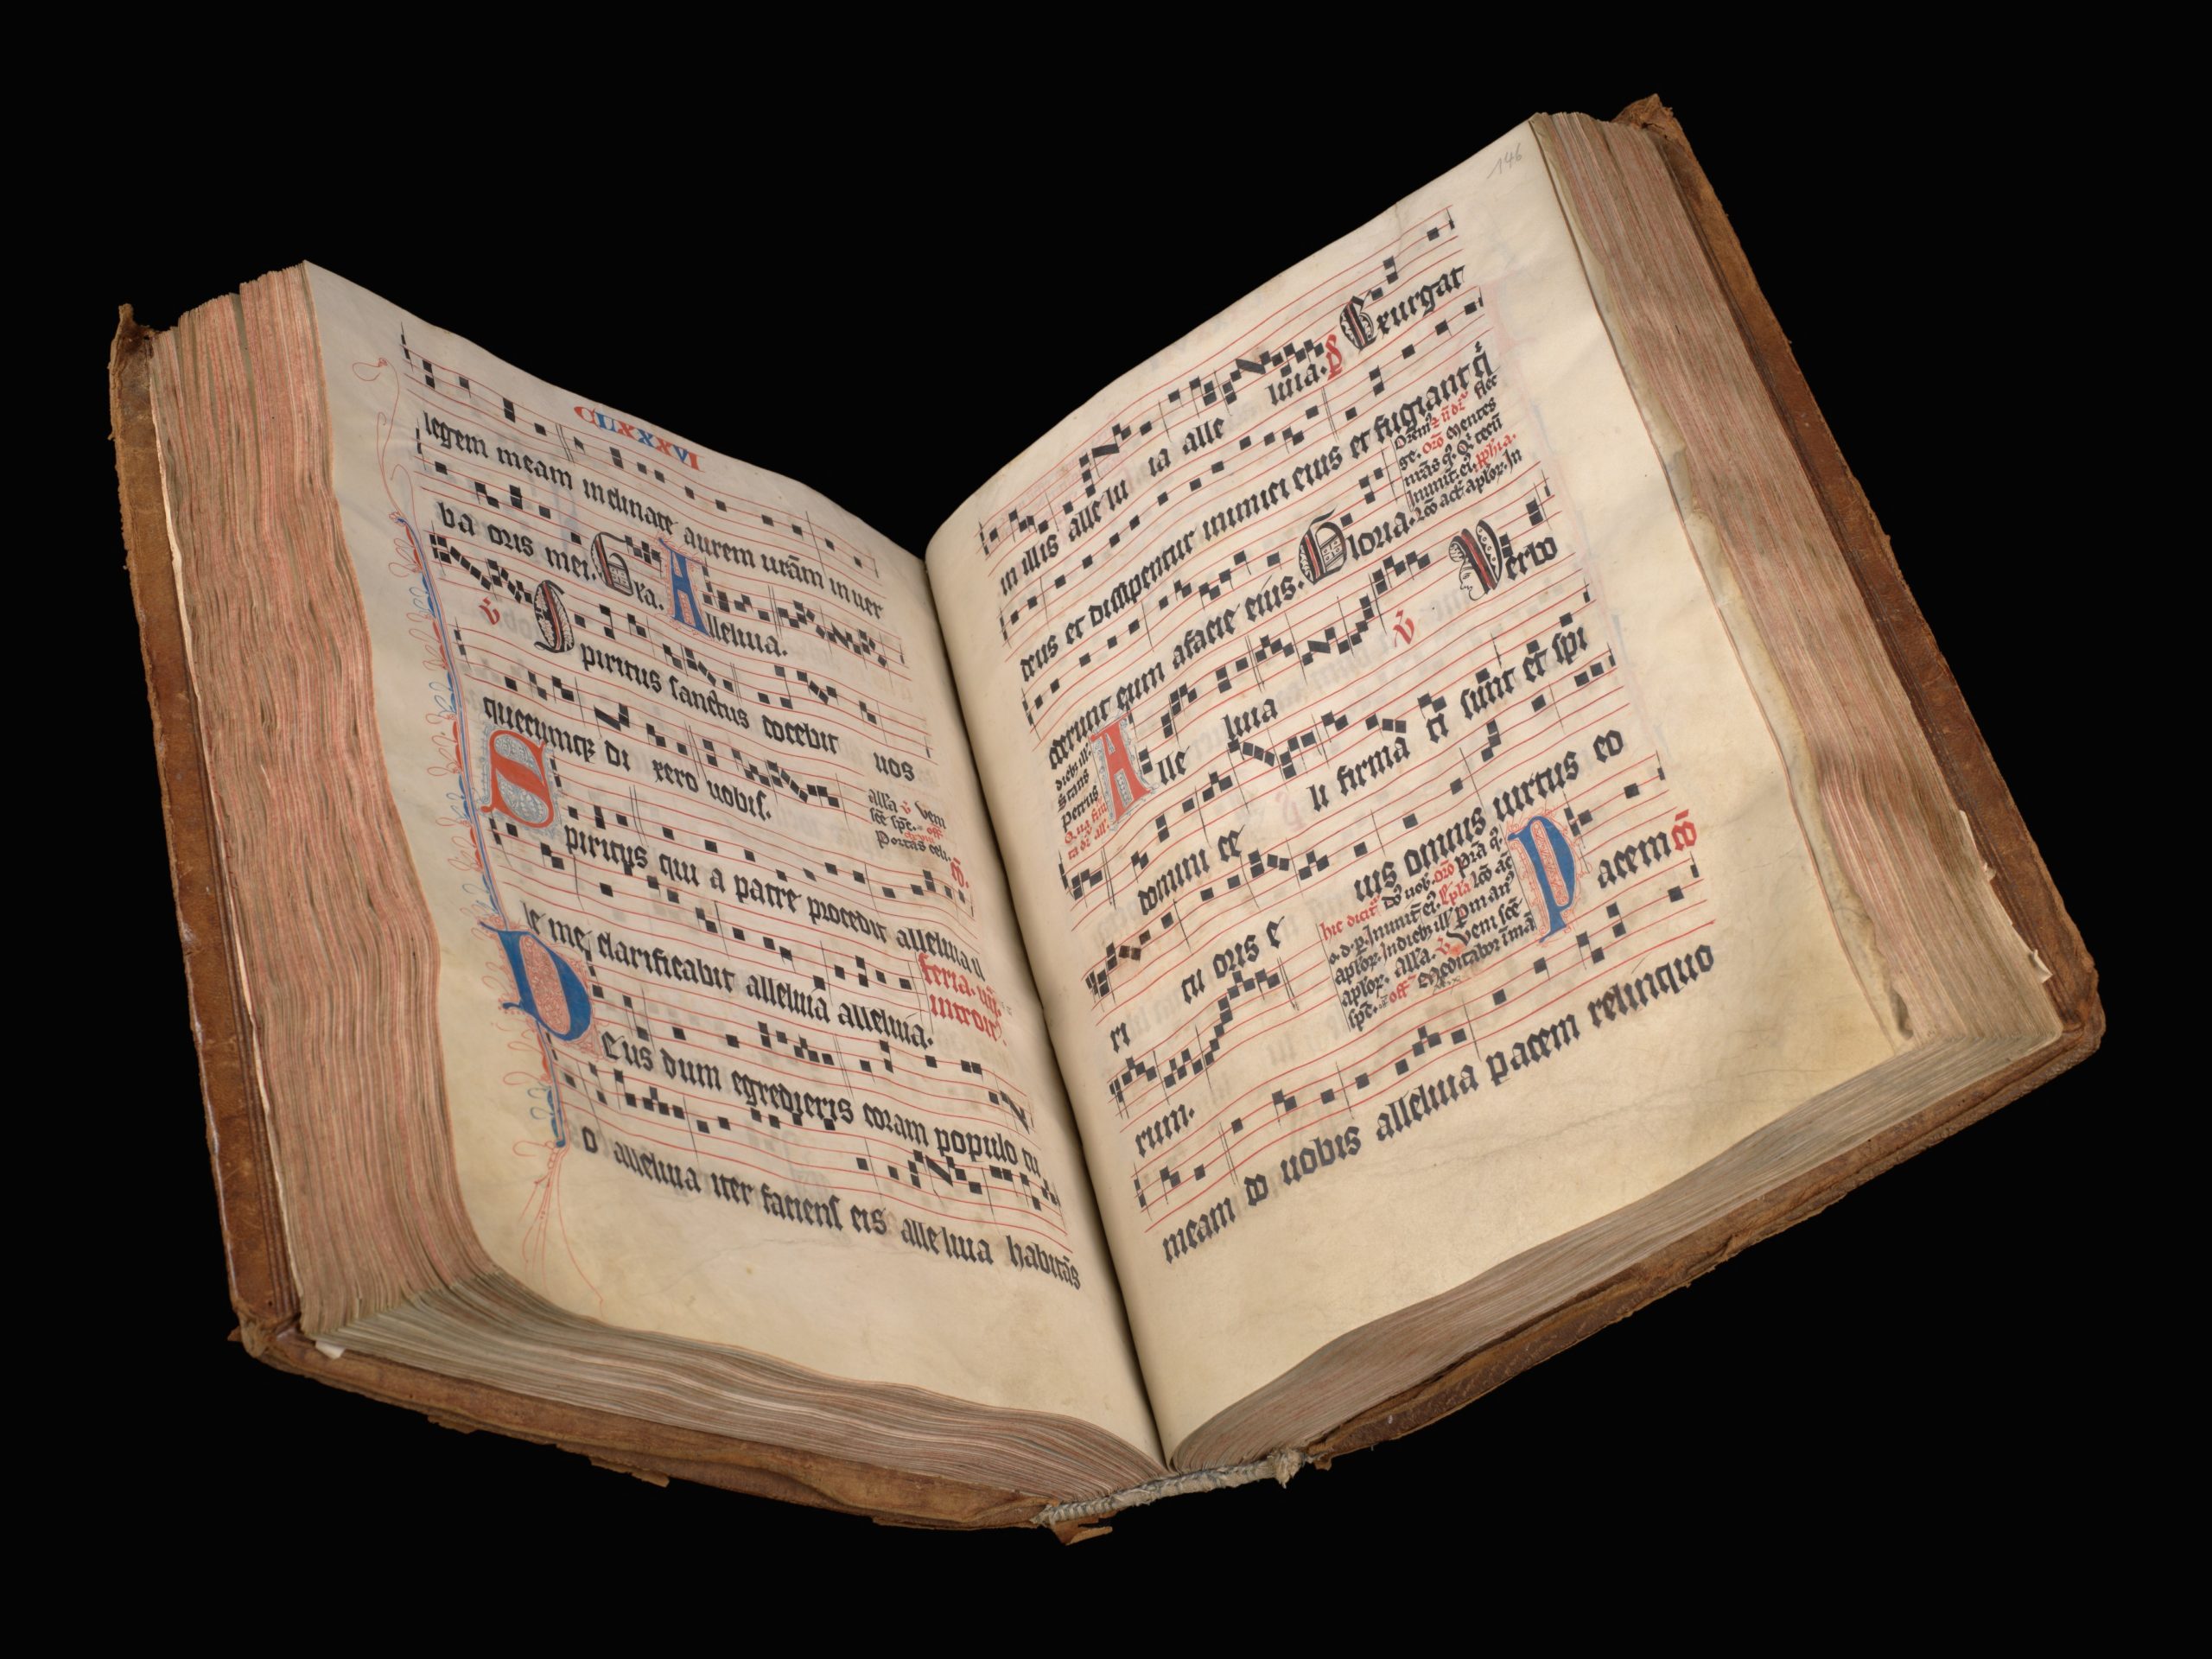 CLXXXVI
legem meam inclinate aurem urãm in uer
ba oris mei. Gra. Alleluia.
v̄ Spiritus sanctus docebit uos
quecumqz di xero uobis.
alla v̄ Veni
sce spc. off
Portas celi. c̄o.
Spiritus qui a patre procedit alleluia il
le me clarificabit alleluia alleluia.
feria. vij.
introit
Deus dum egredieris coram populo tu
o alleluia iter faciens eis alleluia habitãs
146
in illis alle lu ia alle luia. p̄s Exurgat
deus et dissipentur inimici eius et fugiant q̄
oderunt eum a facie eius. Gloria.
Alle luia v̄ Verbo
domini ce li firma ti sunt et spi
ri tu oris e ius omnis uirtus eo
rum.
Pacem c̄o
meam do uobis alleluia pacem relinquo